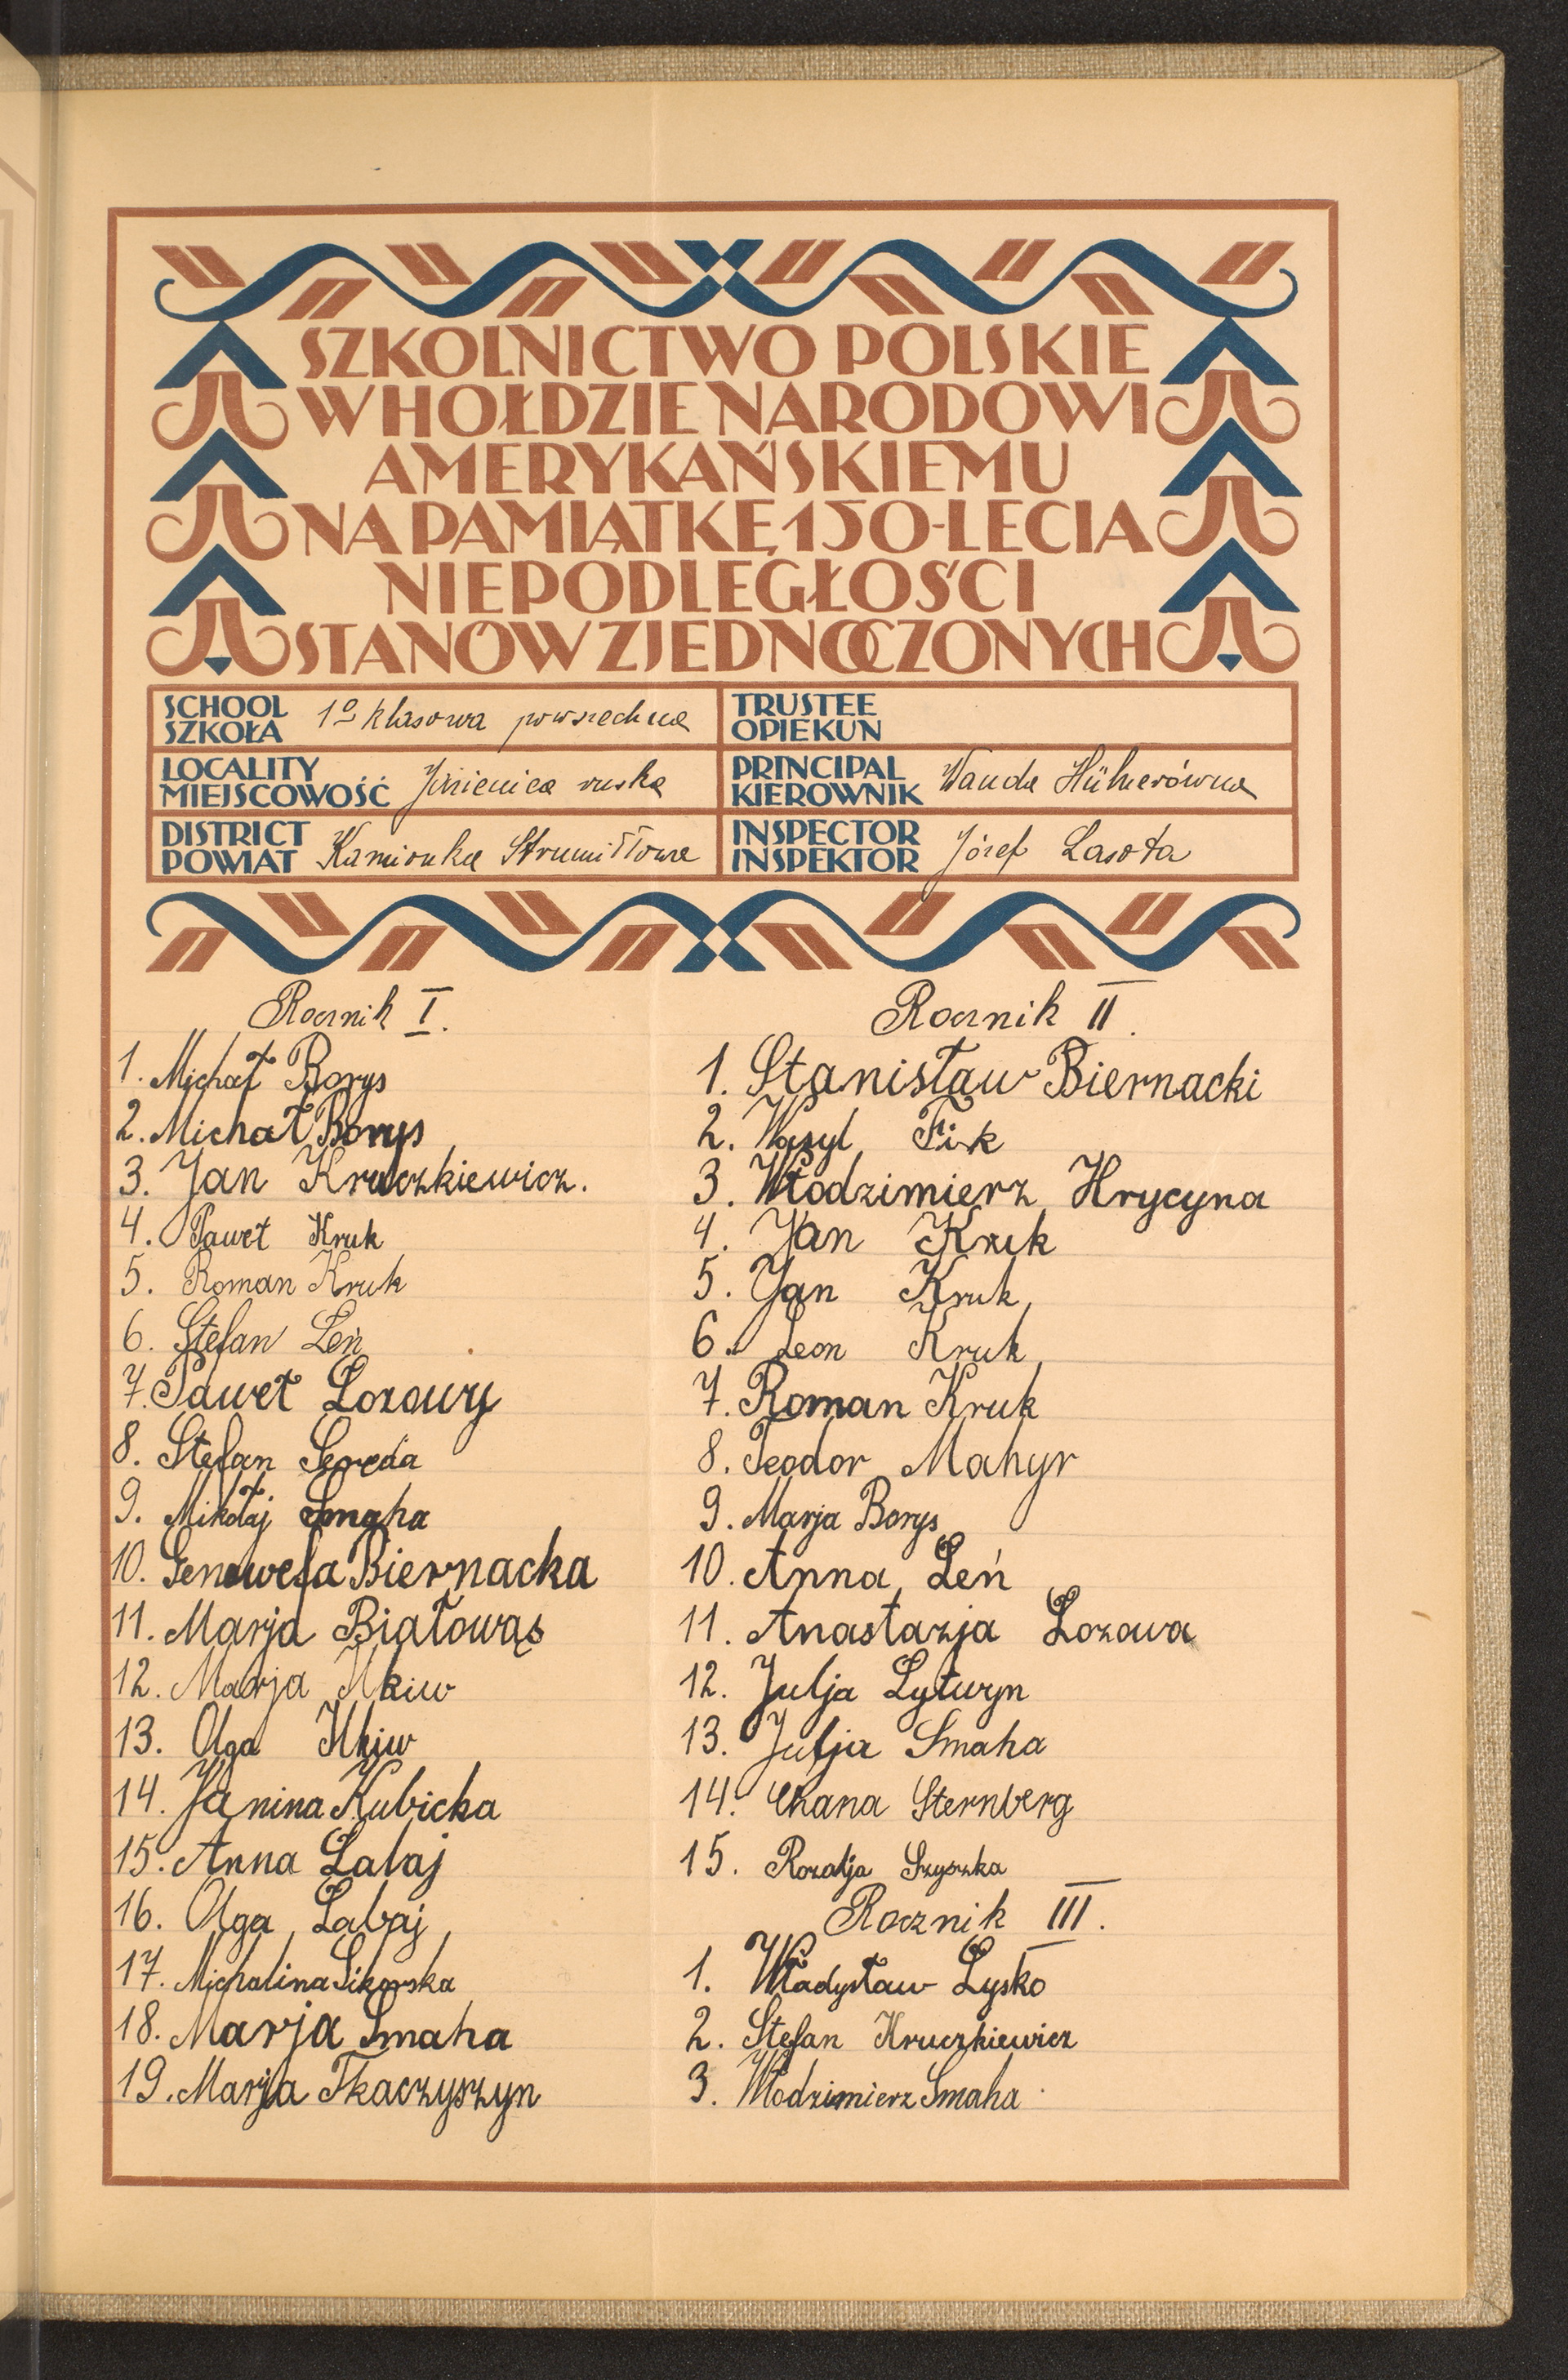 SZKOLNICTWO POLSKIE
W HOŁDZIE NARODOWI
AMERYKAŃSKIEMU
NA PAMIĄTKĘ 150-LECIA
NIEPODLEGŁOŚCI
STANÓW ZJEDNOCZONYCH
SCHOOL
SZKOŁA 1º klasowa powszechna
TRUSTEE
OPIEKUN
LOCALITY
MIEJSCOWOŚĆ ruska
PRINCIPAL
KIEROWNIK Wanda
DISTRICT
POWIAT Kamionka Strumiłłowa
INSPECTOR
INSPEKTOR Józef Lasota
Rocznik I.
1. Michał Borys
2. Michał Borys
3. Jan Kruczkiewicz.
4. Paweł Kruk
5. Roman Kruk
6. Stefan Leń
7. Paweł Łozowy
8. Stefan Sereda
9. Mikołaj Smaha
10. Genowefa Biernacka
11. Marja Białowąs
12. Marja Ilkiw
13. Olga Ilkiw
14. Janina Kubicka
15. Anna Łabaj
16. Olga Łabaj
17. Michalina Sikorska
18. Marja Smaha
19. Marja Tkaczyszyn
Rocznik II.
1. Stanisław Biernacki
2. Wasyl Fik
3. Włodzimierz Hrycyna
4. Jan Kruk
5. Jan Kruk
6. Leon Kruk
7. Roman Kruk
8. Teodor Mahyr
9. Marja Borys
10. Anna Leń
11. Anastazja Łozowa
12. Julja Lytwyn
13. Julja Smaha
14. Chana Sternberg
15. Rozalja Szyszka
Rocznik III.
1. Władysław Łysko
2. Stefan Kruczkiewicz
3. Włodzimierz Smaha